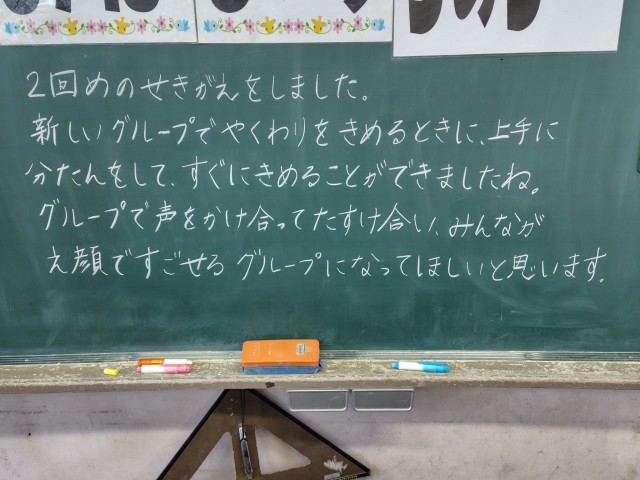 2回めのせきがえをしました。
新しいグループでやくわりをきめるときに、上手に
分たんをして、すぐにきめることができましたね。
グループで声をかけ合ってたすけ合い、みんなが
え顔ですごせるグループになってほしいと思います。